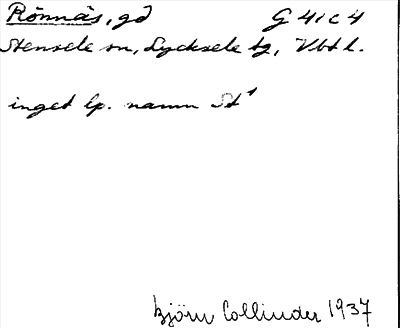 Rönnäs, gd G 41 c 4
Stensele sn, Lycksele tg, Vbtl.
inget lp. namn St¹
Björn Collinder 1937